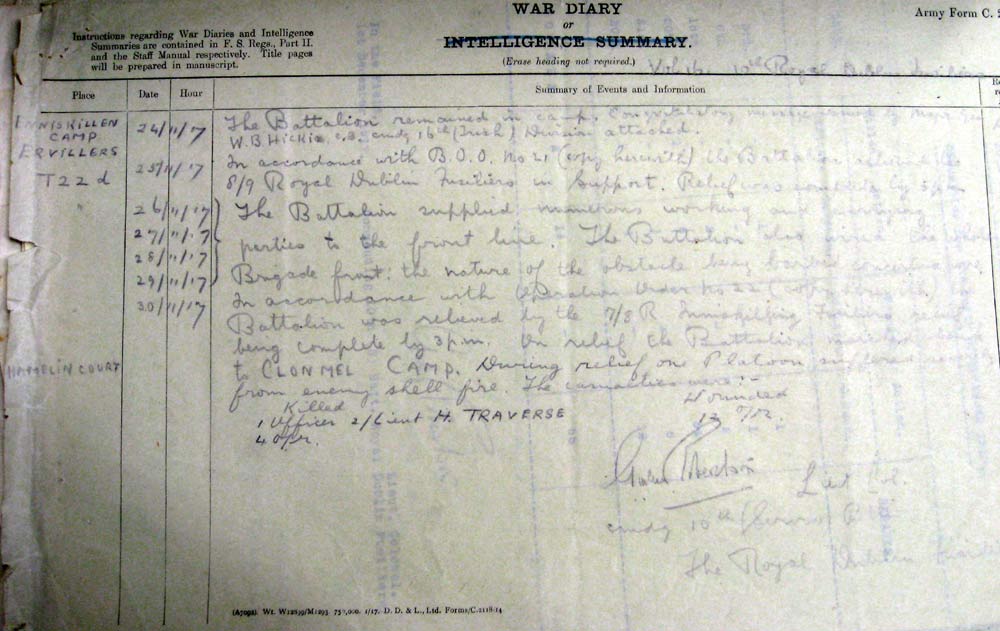 WAR DIARY
or
INTELLIGENCE SUMMARY.
(Erase heading not required.)
Army Form C. 2
Instructions regarding War Diaries and Intelligence
Summaries are contained in F. S. Regs., Part II.
and the Staff Manual respectively. Title pages
will be prepared in manuscript.
Vol 16 10th Royal Dublin Fusiliers
Place Date Hour Summary of Events and Information
ENNISKILLEN CAMP 24/11/17 The Battalion remained in camp. Congratulatory message issued by Major Gen
W.B. Hickie C.B. cmdg 16th (Irish) Division attached.
ERVILLERS T22d 25/11/17 In accordance with B.O.O. No 21 (copy herewith) the Battalion
8/9 Royal Dublin Fusiliers in Support. Relief was complete by 5 pm
26/11/17 The Battalion supplied numerous working and carrying
27/11/17 parties to the front line. The Battalion also wired the whole
28/11/17
29/11/17 Brigade front: the nature of the obstacle being barbed
30/11/17 In accordance with Operation Order No 22 (copy herewith) the
Battalion was relieved by the 7/8 R Inniskilling Fusiliers relief
being complete by 3 p.m. On relief the Battalion marched
HAMELINCOURT to CLONMEL CAMP. During relief one Platoon suffered
from enemy shell fire. The casualties were:-
Killed Wounded
1 Officer 2/Lieut H. TRAVERSE 13 O/R.
4 O/R.
Lieut Col.
cmdg 10th (Service) B
The Royal Dublin Fusiliers
(A7092). Wt. W12839/M1293 750,000. 1/17. D. D. & L., Ltd. Forms/C.2118/14